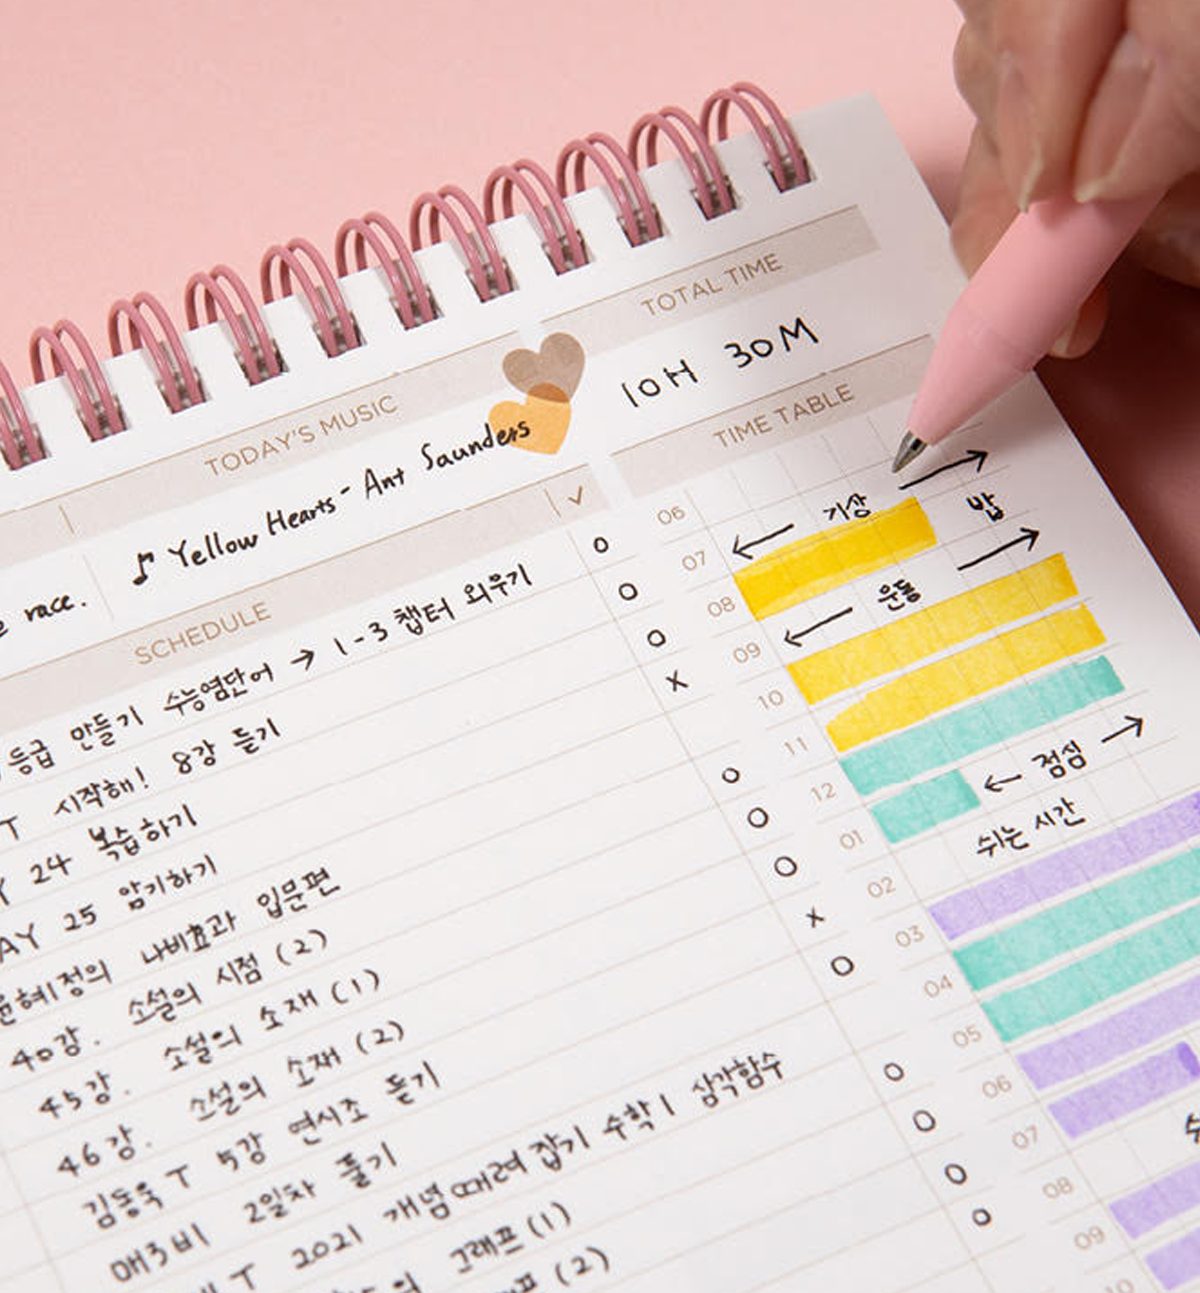 TOTAL TIME
10H 30M
TODAY'S MUSIC
♪ Yellow Hearts - Ant Saunders
race.
TIME TABLE
SCHEDULE ✓
등급 만들기 수능영단어 → 1-3 챕터 외우기 O
T 시작해! 8강 듣기 O
24 복습하기 O
DAY 25 암기하기 X
윤혜정의 나비효과 입문편
40강. 소설의 시점 (2) O
45강. 소설의 소재 (1) O
46강. 소설의 소재 (2) O
김동욱 T 5강 연시조 듣기 X
매3비 2일차 풀기 O
T 2021 개념때려잡기 수학1 삼각함수
의 그래프 (1) O
(2) O
O
O
06 ← 기상 →
07 밥
08 ← 운동 →
09
10
11
12 ← 점심 →
01 쉬는 시간
02
03
04
05
06
07
08
09
10